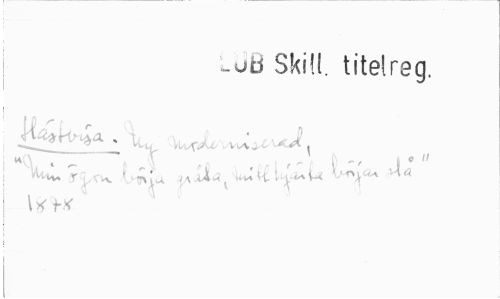 LUB Skill. titelreg.
Hästvisa. Ny moderniserad,
"Min ögon börja gråta, mitt hjärta börjar slå"
1878